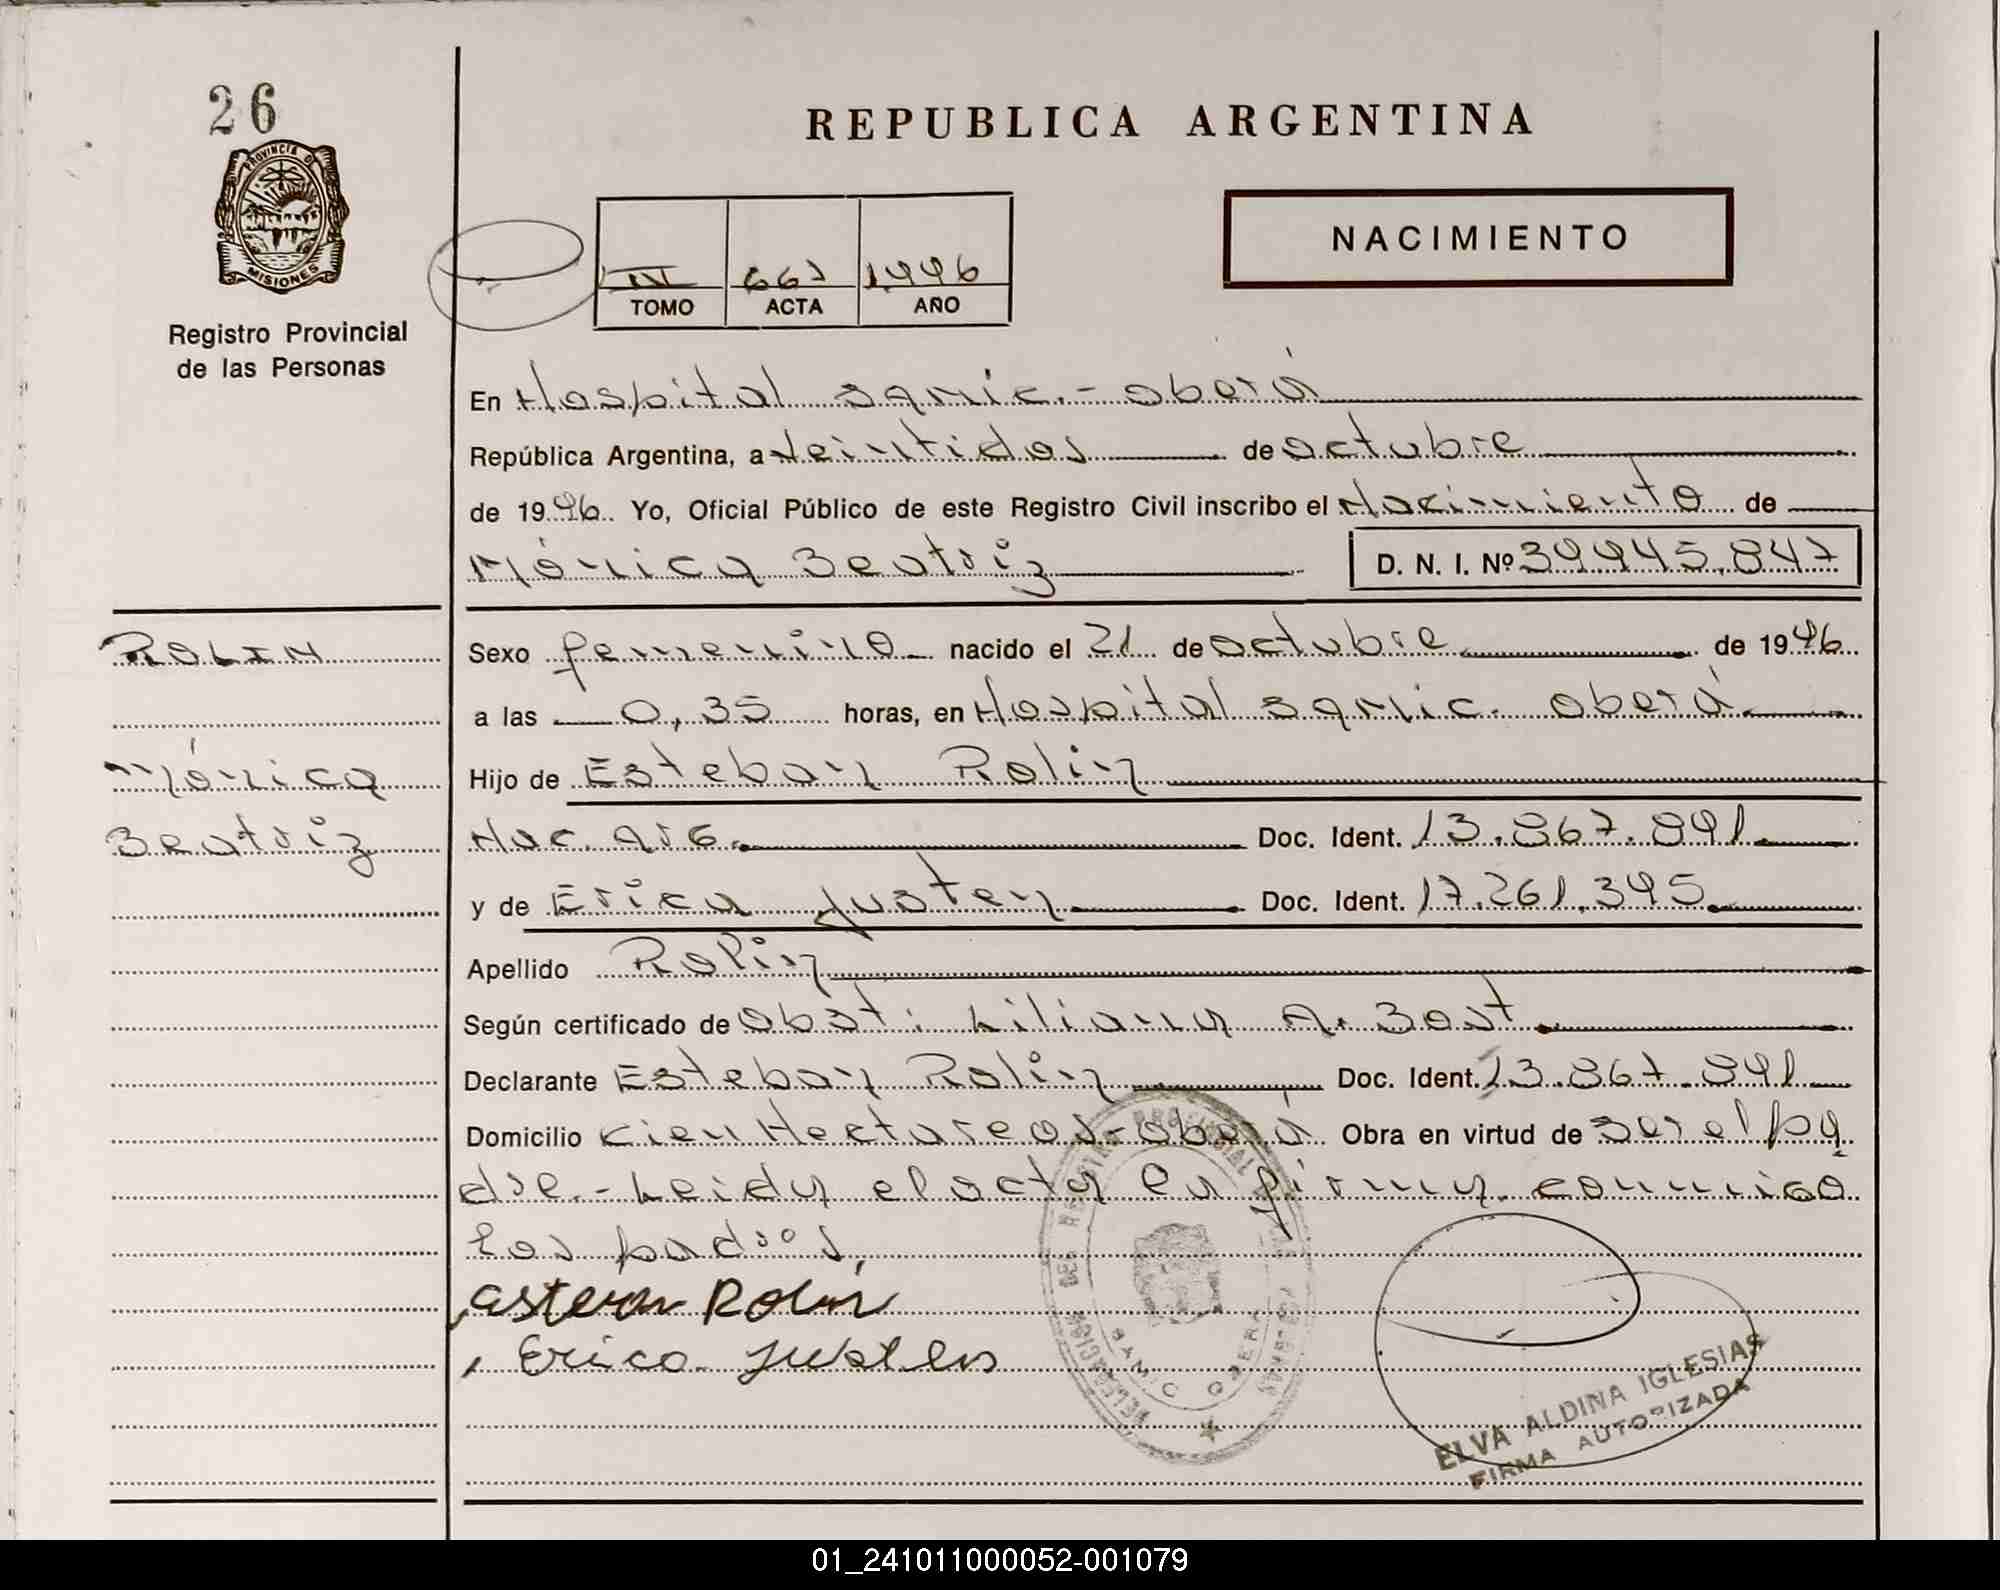 26
REPUBLICA ARGENTINA
PROVINCIA DE
MISIONES
NACIMIENTO
IV 667 1996
TOMO ACTA AÑO
Registro Provincial
de las Personas
En Hospital Samic.- Oberá
República Argentina, a Veintidos de Octubre
de 1996. Yo, Oficial Público de este Registro Civil inscribo el Nacimiento de
Mónica Beatriz D. N. I. Nº 39945.847
ROLIN
Sexo femenino nacido el 21 de Octubre de 1996
a las 0,35 horas, en Hospital Samic. Oberá
Mónica
Hijo de Esteban Rolin
Beatriz
Nac. arg. Doc. Ident. 13.867.891
y de Erica Justen Doc. Ident. 17.261.395
Apellido Rolin
Según certificado de Obst: Liliana A. Bost
Declarante Esteban Rolin Doc. Ident. 13.867.891
Domicilio Cien Hectareas-Oberá Obra en virtud de Ser el pa
dre.- Leida el acta la firman conmigo
los padres.
Esteban Rolin
Erica
DELEGACION DEL REGISTRO PROVINCIAL DE LAS PERSONAS
SAMIC OBERA
ELVA ALDINA IGLESIAS
FIRMA AUTORIZADA
01_241011000052-001079